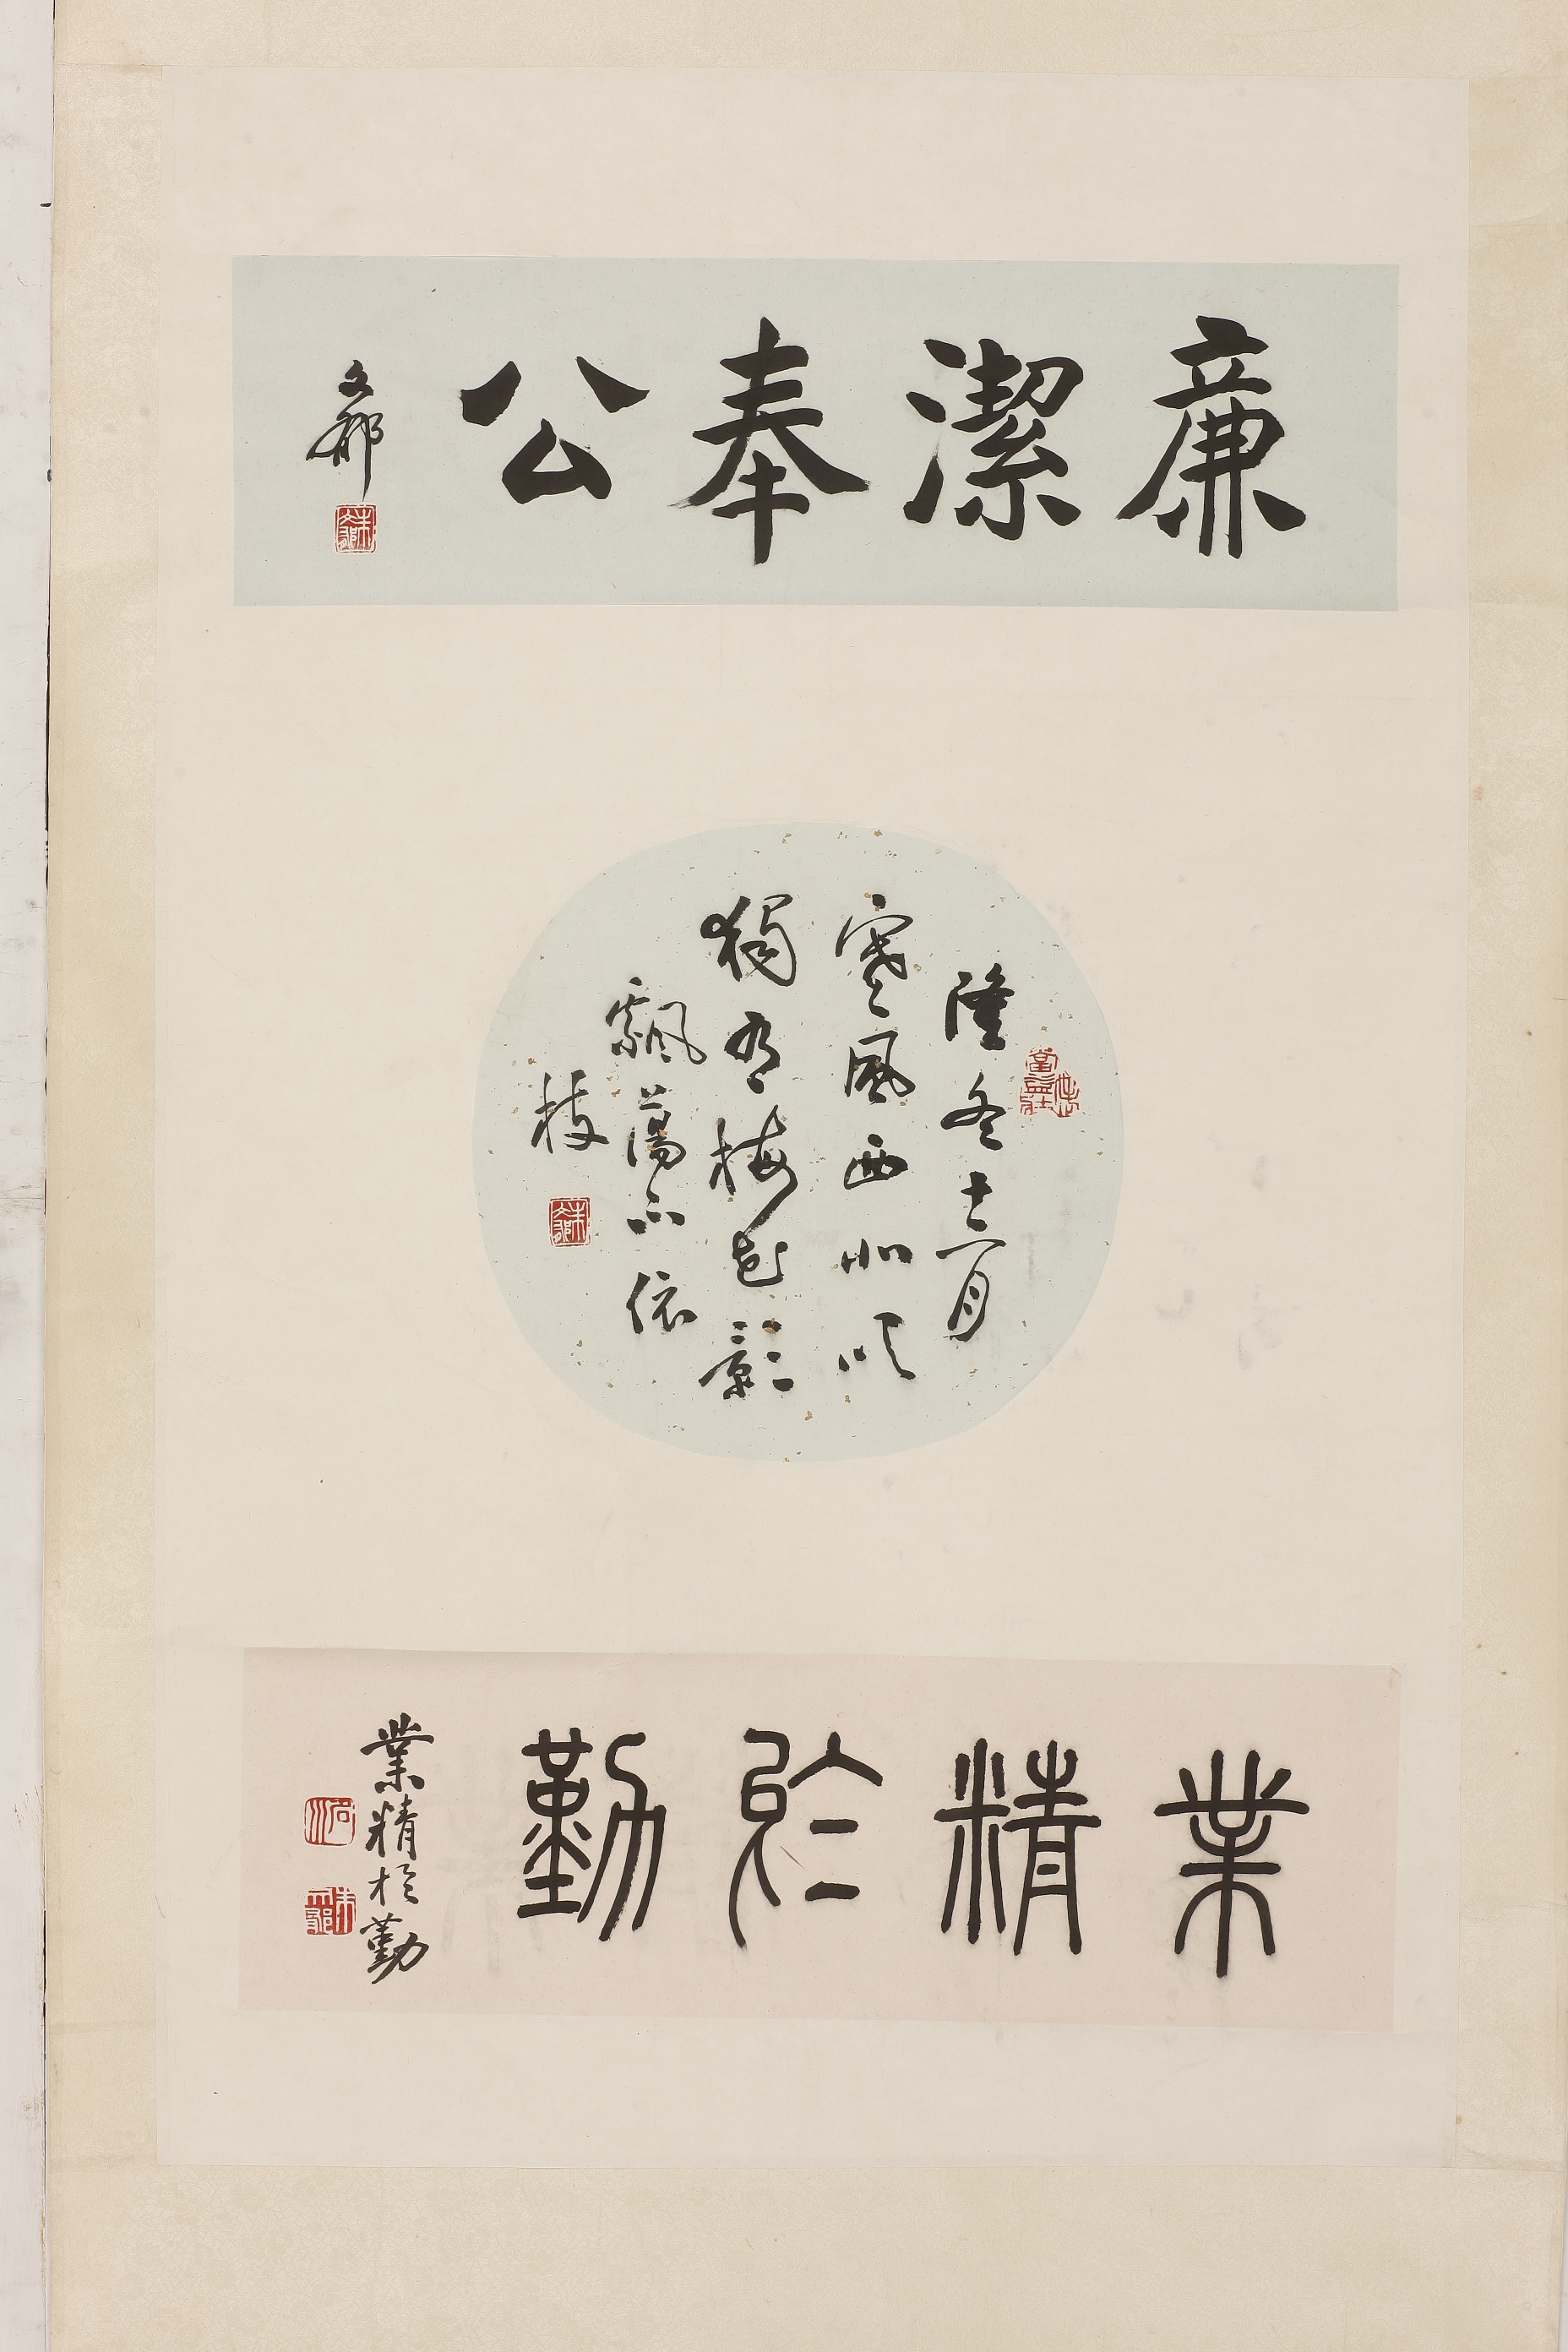 廉潔奉公
文郁
朱文郁
隆冬十二月
寒風西北吹
獨有梅花影
飄蕩不依
枝
朱文郁
業精於勤
業精於勤